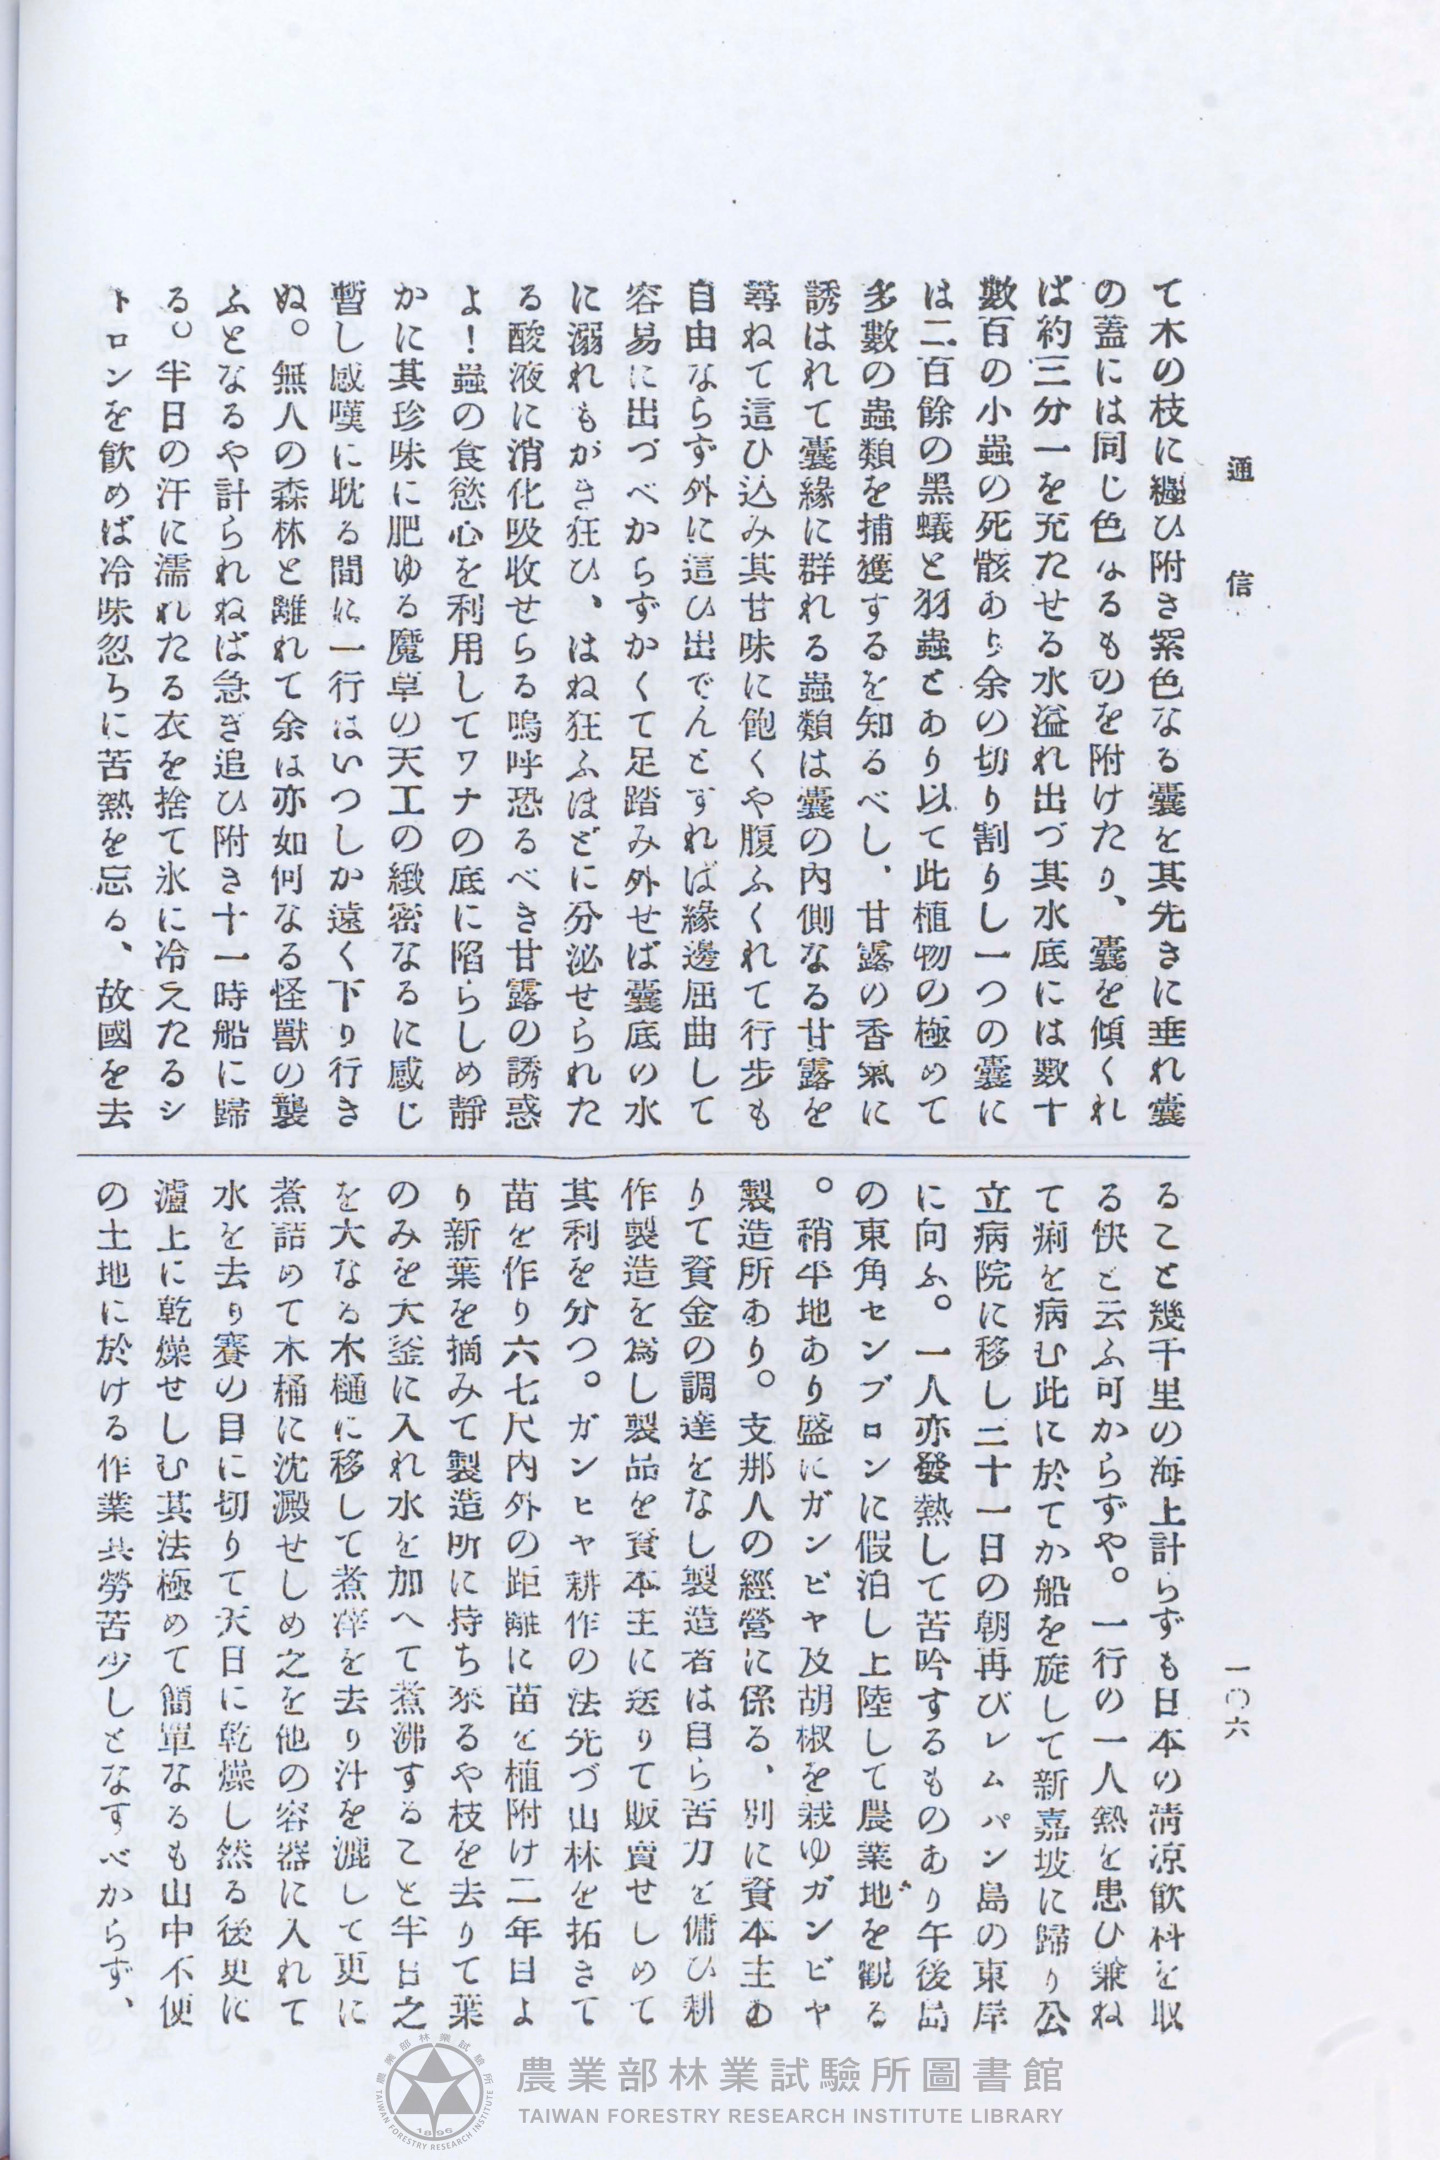 通信
一〇六
て木の枝に纒ひ附き紫色なる囊を其先きに垂れ囊
の蓋には同じ色なるものを附けたり、囊を傾くれ
ば約三分一を充たせる水溢れ出づ其水底には數十
數百の小蟲の死骸あり余の切り割りし一つの囊に
は二百餘の黑蟻と羽蟲とあり以て此植物の極めて
多數の蟲類を捕獲するを知るべし、甘露の香氣に
誘はれて囊緣に群れる蟲類は囊の內側なる甘露を
尋ねて這ひ込み其甘味に飽くや腹ふくれて行步も
自由ならず外に這ひ出でんとすれば緣邊屈曲して
容易に出づべからずかくて足踏み外せば囊底の水
に溺れもがき狂ひ、はね狂ふほどに分泌せられた
る酸液に消化吸收せらる嗚呼恐るべき甘露の誘惑
よ！蟲の食慾心を利用してワナの底に陷らしめ靜
かに其珍味に肥ゆる魔草の天工の緻密なるに感じ
暫し感嘆に耽る間に一行はいつしか遠く下り行き
ぬ。無人の森林と離れて余は亦如何なる怪獸の襲
ふとなるや計られねば急ぎ追ひ附き十一時船に歸
る。半日の汗に濡れたる衣を捨て氷に冷えたるシ
トロンを飮めば冷味忽ちに苦熱を忘る、故國を去
ること幾千里の海上計らずも日本の淸凉飮料を取
る快と云ふ可からずや。一行の一人熱を患ひ兼ね
て痢を病む此に於てか船を旋して新嘉坡に歸り公
立病院に移し二十一日の朝再びレムパン島の東岸
に向ふ。一人亦發熱して苦吟するものあり午後島
の東角センブロンに假泊し上陸して農業地を觀る
。稍平地あり盛にガンビヤ及胡椒を栽ゆガンビヤ
製造所あり。支那人の經營に係る、別に資本主あ
りて資金の調達をなし製造者は自ら苦力を傭ひ耕
作製造を爲し製品を資本主に送りて販賣せしめて
其利を分つ。ガンヒヤ耕作の法先づ山林を拓きて
苗を作り六七尺內外の距離に苗を植附け二年目よ
り新葉を摘みて製造所に持ち來るや枝を去りて葉
のみを大釜に入れ水を加へて煮沸すること半日之
を大なる木樋に移して煮滓を去り汁を漉して更に
煮詰めて木桶に沈澱せしめ之を他の容器に入れて
水を去り賽の目に切りて天日に乾燥し然る後更に
爐上に乾燥せしむ其法極めて簡單なるも山中不便
の土地に於ける作業其勞苦少しとなすべからず、
農業部林業試驗所圖書館
TAIWAN FORESTRY RESEARCH INSTITUTE LIBRARY
農業部林業試驗所
TAIWAN FORESTRY RESEARCH INSTITUTE
1896